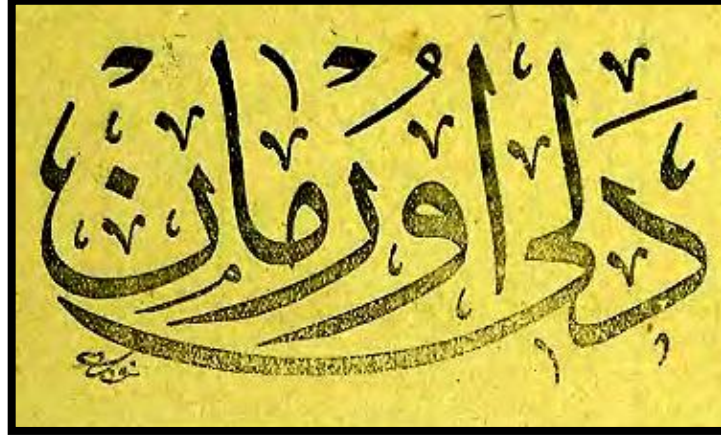 دلى اورمان